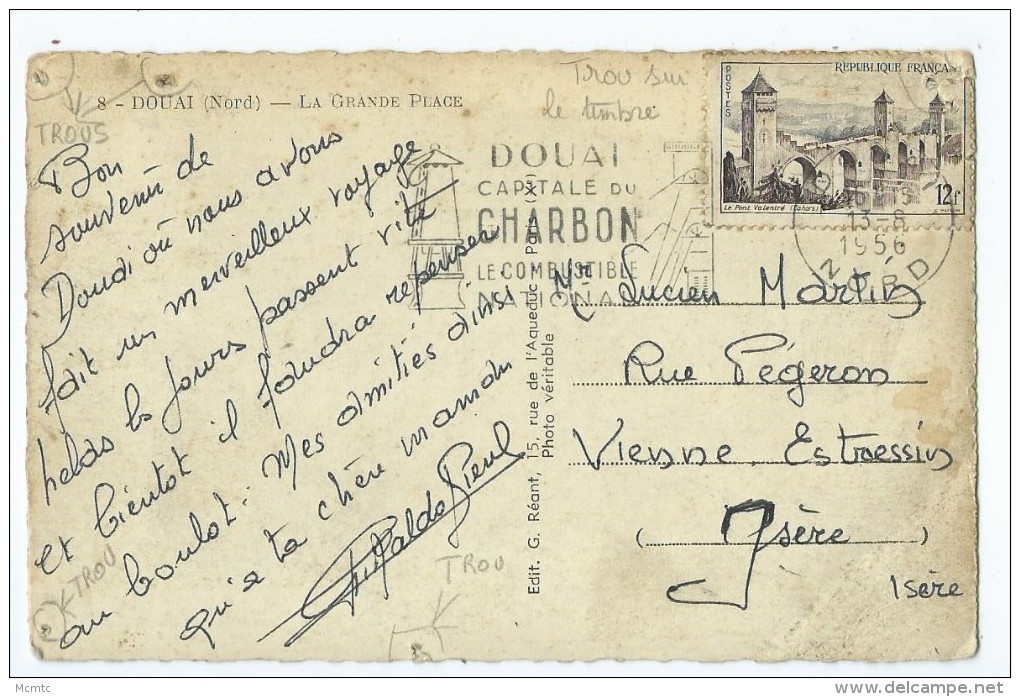 8 - DOUAI (Nord) — LA GRANDE PLACE
TROUS
Trou sur
le timbre
REPUBLIQUE FRANÇAI
POSTES
Le Pont Valentré (Cahors)
12f
DOUAI
CAPITALE DU
CHARBON
LE COMBUSTIBLE
NATIONAL
13-8
1956
NORD
Bon
souvenir de
Douai où nous avons
fait un merveilleux voyage
helas les jours passent vite
et bientot il faudra repenser
au boulot. Mes amitiés ainsi
qu'a ta chère maman
TROU
TROU
Edit. G. Réant, 15, rue de l'Aqueduc - Paris (X)
Photo véritable
Mr Lucien Martin
Rue Pégeron
Vienne Estressin
( Isère )
Isère
Mcmtc
www.delcampe.net